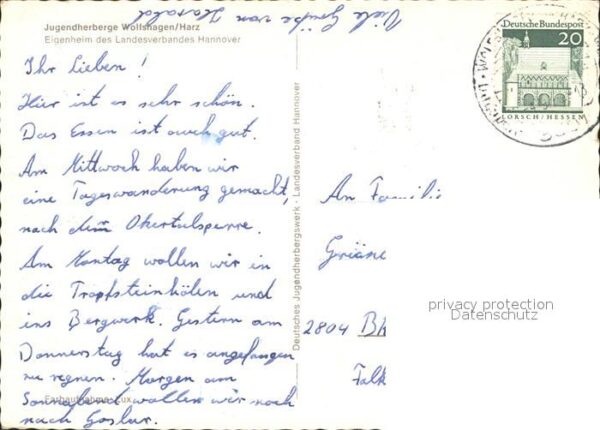 Jugendherberge Wolfshagen/Harz
Eigenheim des Landesverbandes Hannover
Viele Grüße von Harald
Ihr Lieben!
Hier ist es sehr schön.
Das Essen ist auch gut.
Am Mittwoch haben wir
eine Tageswanderung gemacht,
nach dem Okertalsperre.
Am Montag wollen wir in
die Tropfsteinhölen und
ins Bergwerk. Gestern am
Donnerstag hat es angefangen
zu regnen. Morgen am
Sonnabend wollen wir noch
nach Goslar.
Farbaufnahme: Lux
Deutsches Jugendherbergswerk · Landesverband Hannover
Deutsche Bundespost
20
LORSCH/HESSEN
An Famili
Grüne
2804
Falk
privacy protection
Datenschutz